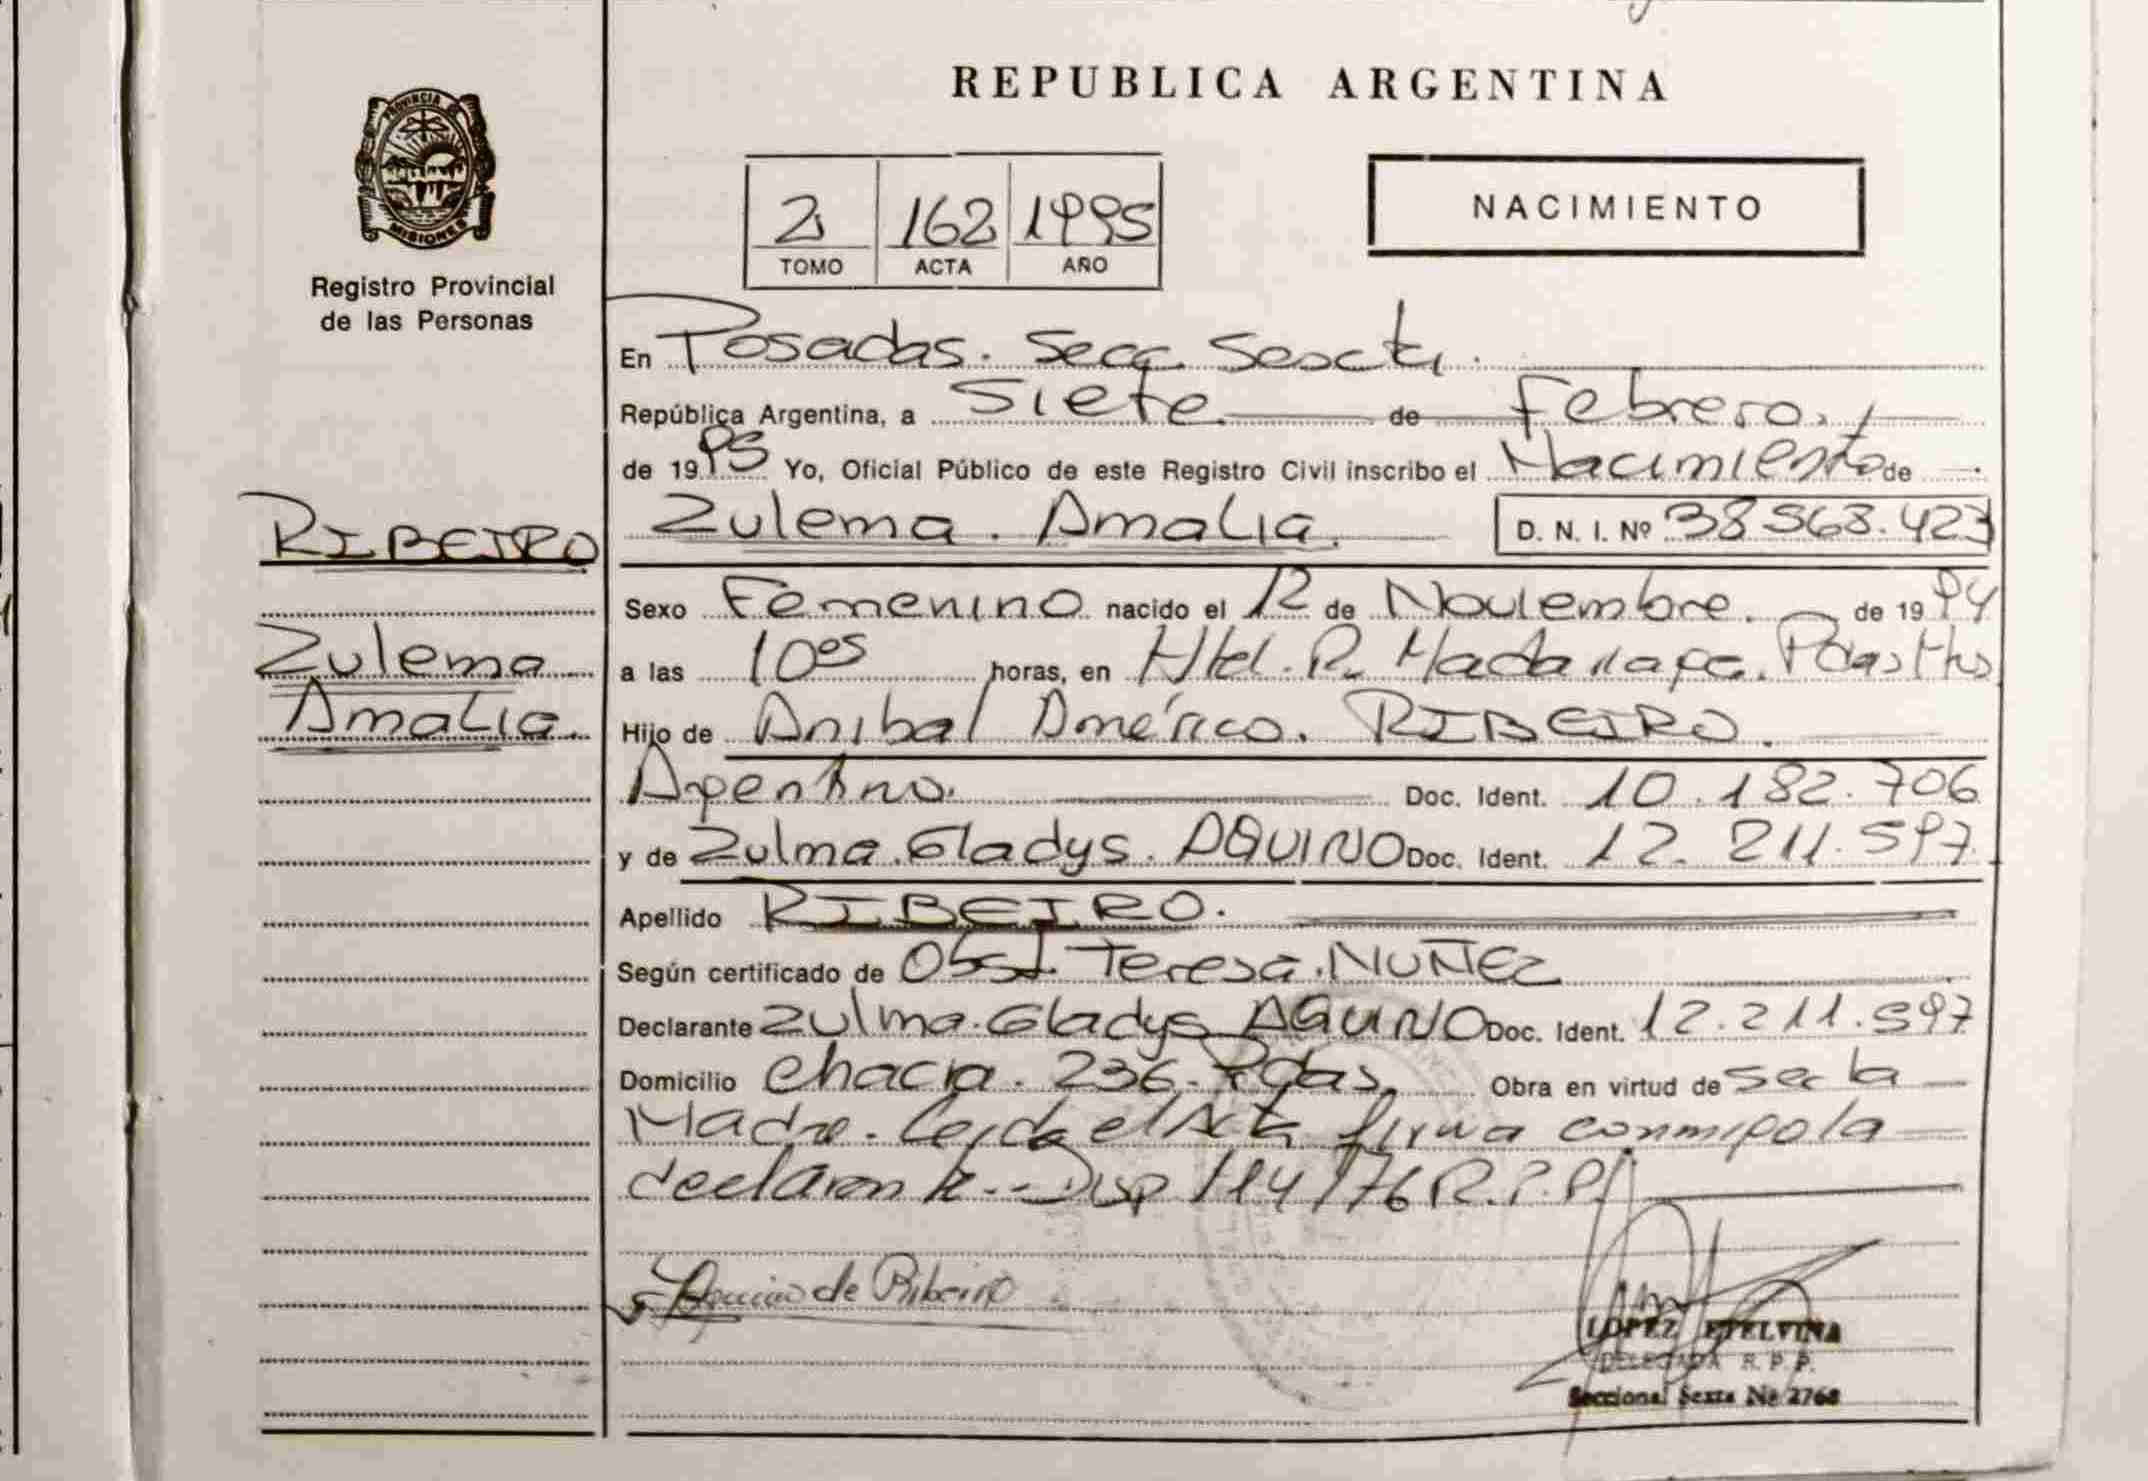 REPUBLICA ARGENTINA
PROVINCIA DE
MISIONES
Registro Provincial
de las Personas
2 162 1995
TOMO ACTA AÑO
NACIMIENTO
En Posadas. Secc. Sexta.
República Argentina, a Siete de Febrero.
de 1995 Yo, Oficial Público de este Registro Civil inscribo el Nacimiento de
RIBEIRO
Zulema Amalia.
Zulema. Amalia. D. N. I. Nº 38.568.423
Sexo Femenino nacido el 12 de Noviembre. de 1994
a las 10 05 horas, en Htal. R. Madariaga. Pdas Mnes
Hijo de Anibal Américo. RIBEIRO.
Argentino. Doc. Ident. 10.182.706
y de Zulma. Gladys. AQUINO Doc. Ident. 12.211.597
Apellido RIBEIRO.
Según certificado de Obst. Teresa. NUÑEZ
Declarante Zulma. Gladys AQUINO Doc. Ident. 12.211.597
Domicilio Chacra. 236. Pdas. Obra en virtud de ser la
Madre. Leida el Acta firma conmigo la
declarante.- Disp 114/76 R.P.P.
Aquino de Ribeiro
LOPEZ ETELVINA
DELEGADA R. P. P.
Seccional Sexta Nº 2768